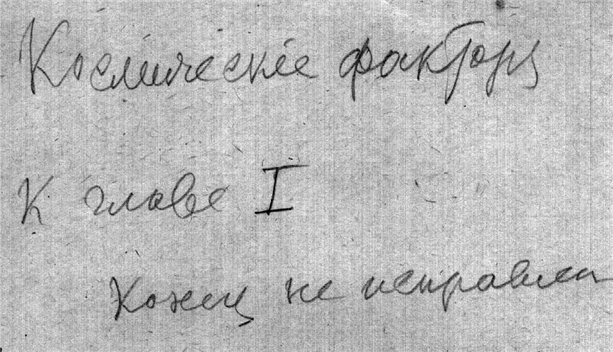 Космические факторы
К главе I
Конец не исправлен